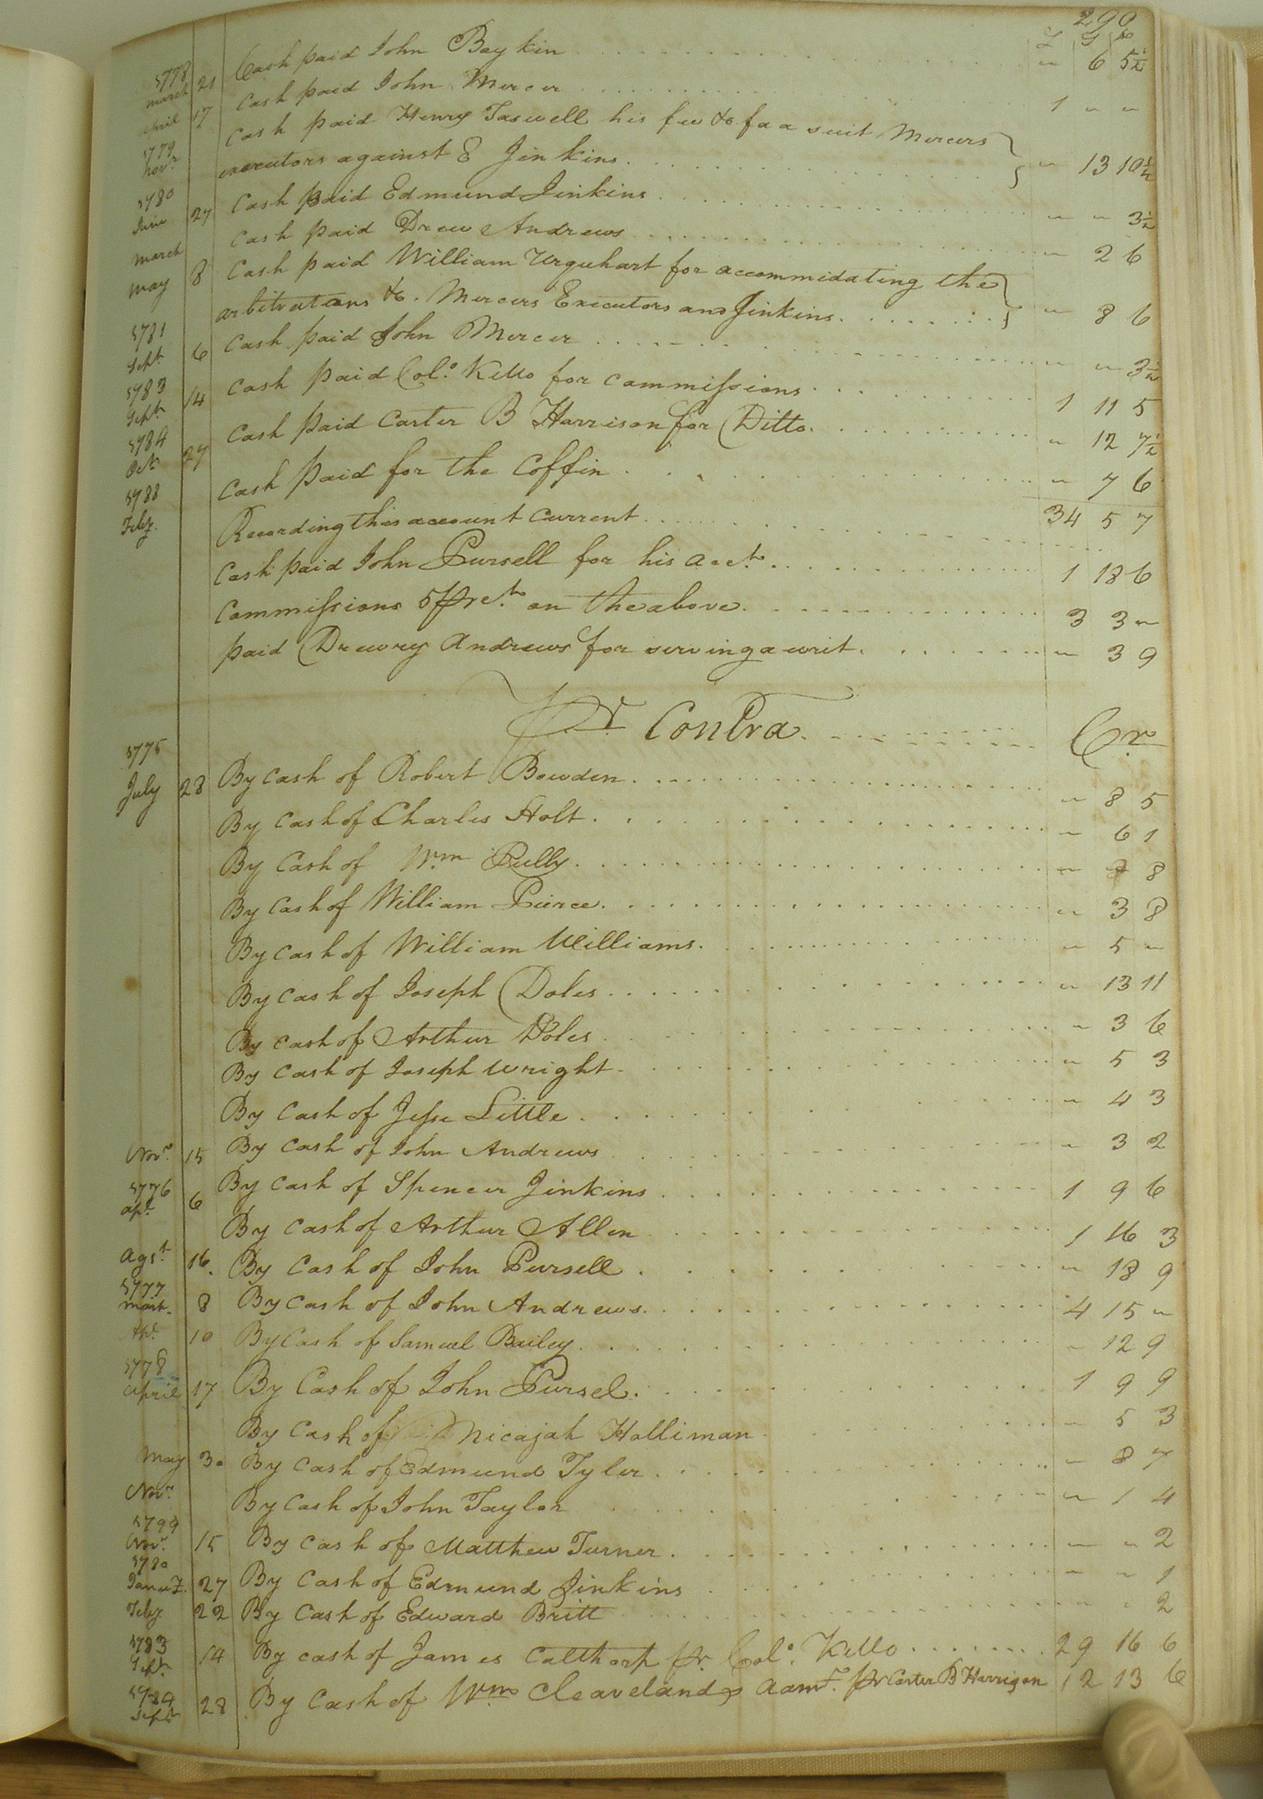 290
£ S d
Cash paid John Boykin - 6 5½
1778 march 21 Cash paid John Mercer 1 - -
april 17 Cash paid Henry Taswell his fee &c. for a suit Mercers
1779 Novr. executors against E Jinkins - 13 10½
1780 June 27 Cash paid Edmund Jinkins - - 3½
march Cash paid Drew Andrews - 2 6
may 8 Cash paid William Urquhart for accommidating the
arbitrators &c. Mercers Executors and Jinkins - 8 6
1781 Sept. 6 Cash paid John Mercer - - 3½
1783 Sept. 14 Cash paid Colo. Kello for commissions 1 11 5
1784 Oct. 27 Cash paid Carter B Harrison for Ditto - 12 7½
1788 Feby. Cash paid for the Coffin - 7 6
Recording this account current 34 5 7
Cash paid John Pursell for his acct. 1 18 6
Commissions 5 pr ct. on the above 3 3 -
paid Drewry Andrews for serving a writ - 3 9
Pr Contra Cr.
1775
July 28 By Cash of Robert Bowden - 8 5
By Cash of Charles Holt - 6 1
By Cash of Wm Pully - 7 8
By Cash of William Pierce - 3 8
By Cash of William Williams - 5 -
By Cash of Joseph Doles - 13 11
By Cash of Arthur Doles - 3 6
By Cash of Joseph Wright - 5 3
By Cash of Jesse Little - 4 3
Novr. 15 By Cash of John Andrews - 3 2
1776 apl. 6 By Cash of Spencer Jinkins 1 9 6
By Cash of Arthur Allen 1 16 3
Agst. 16 By Cash of John Pursell - 18 9
1777 March 8 By Cash of John Andrews 4 15 -
Apl. 10 By Cash of Samuel Bailey - 12 9
1778 april 17 By Cash of John Pursel 1 9 9
By Cash of Micajah Holliman - 5 3
May 30 By Cash of Edmund Tyler - 8 7
Novr. By Cash of John Taylor - 1 4
1799 Novr. 15 By Cash of Matthew Turner - - 2
1780 Januy. 27 By Cash of Edmund Jinkins - - 1
Feby. 22 By Cash of Edward Britt - - 2
1783 Sept. 14 By cash of James Calthorp pr. Colo. Kello 29 16 6
1784 Sept. 28 By Cash of Wm Cleaveland Admr. pr Carter B Harrison 12 13 6